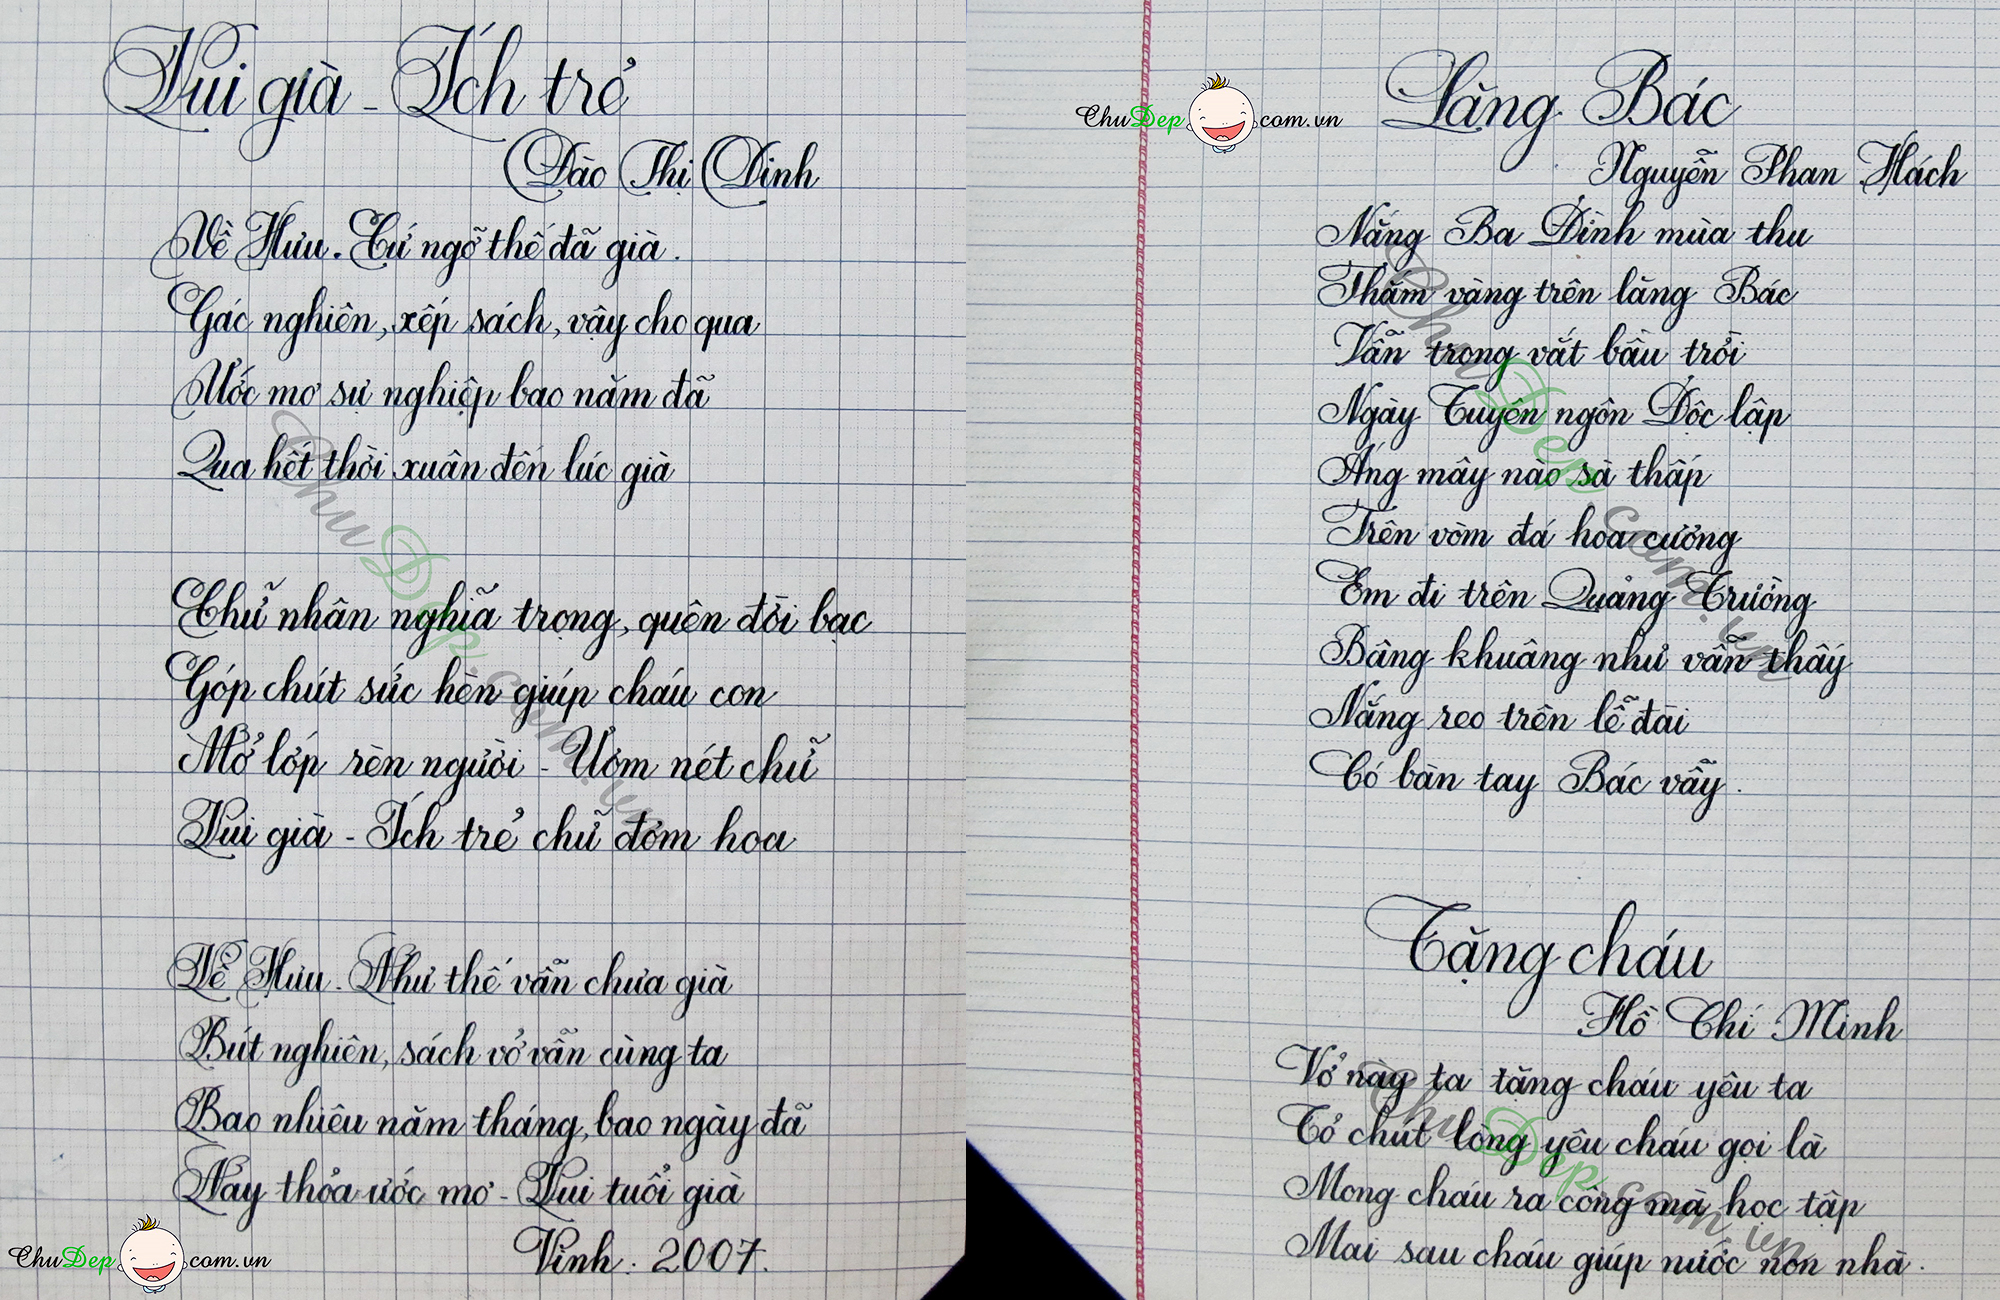 Vui già - Ích trẻ
Đào Thị Dinh
Về Hưu. Cứ ngỡ thế đã già.
Gác nghiên, xếp sách, vậy cho qua
Ước mơ sự nghiệp bao năm đã
Qua hết thời xuân đến lúc già
Chữ nhân nghĩa trọng, quên đời bạc
Góp chút sức hèn giúp cháu con
Mở lớp rèn người - Ươm nét chữ
Vui già - Ích trẻ chữ đơm hoa
Về Hưu. Như thế vẫn chưa già
Bút nghiên, sách vở vẫn cùng ta
Bao nhiêu năm tháng, bao ngày đã
Nay thỏa ước mơ - Vui tuổi già
Vinh: 2007.
ChuDep.com.vn
ChuDep.com.vn
ChuDep com.vn
Lăng Bác
Nguyễn Phan Hách
Nắng Ba Đình mùa thu
Thắm vàng trên lăng Bác
Vẫn trong vắt bầu trời
Ngày Tuyên ngôn Độc lập
Áng mây nào sà thấp
Trên vòm đá hoa cương
Em đi trên Quảng Trường
Bâng khuâng như vẫn thấy
Nắng reo trên lễ đài
Có bàn tay Bác vẫy.
ChuDep.com.vn
Tặng cháu
Hồ Chí Minh
Vở này ta tặng cháu yêu ta
Tỏ chút lòng yêu cháu gọi là
Mong cháu ra công mà học tập
Mai sau cháu giúp nước non nhà.
ChuDep.com.vn